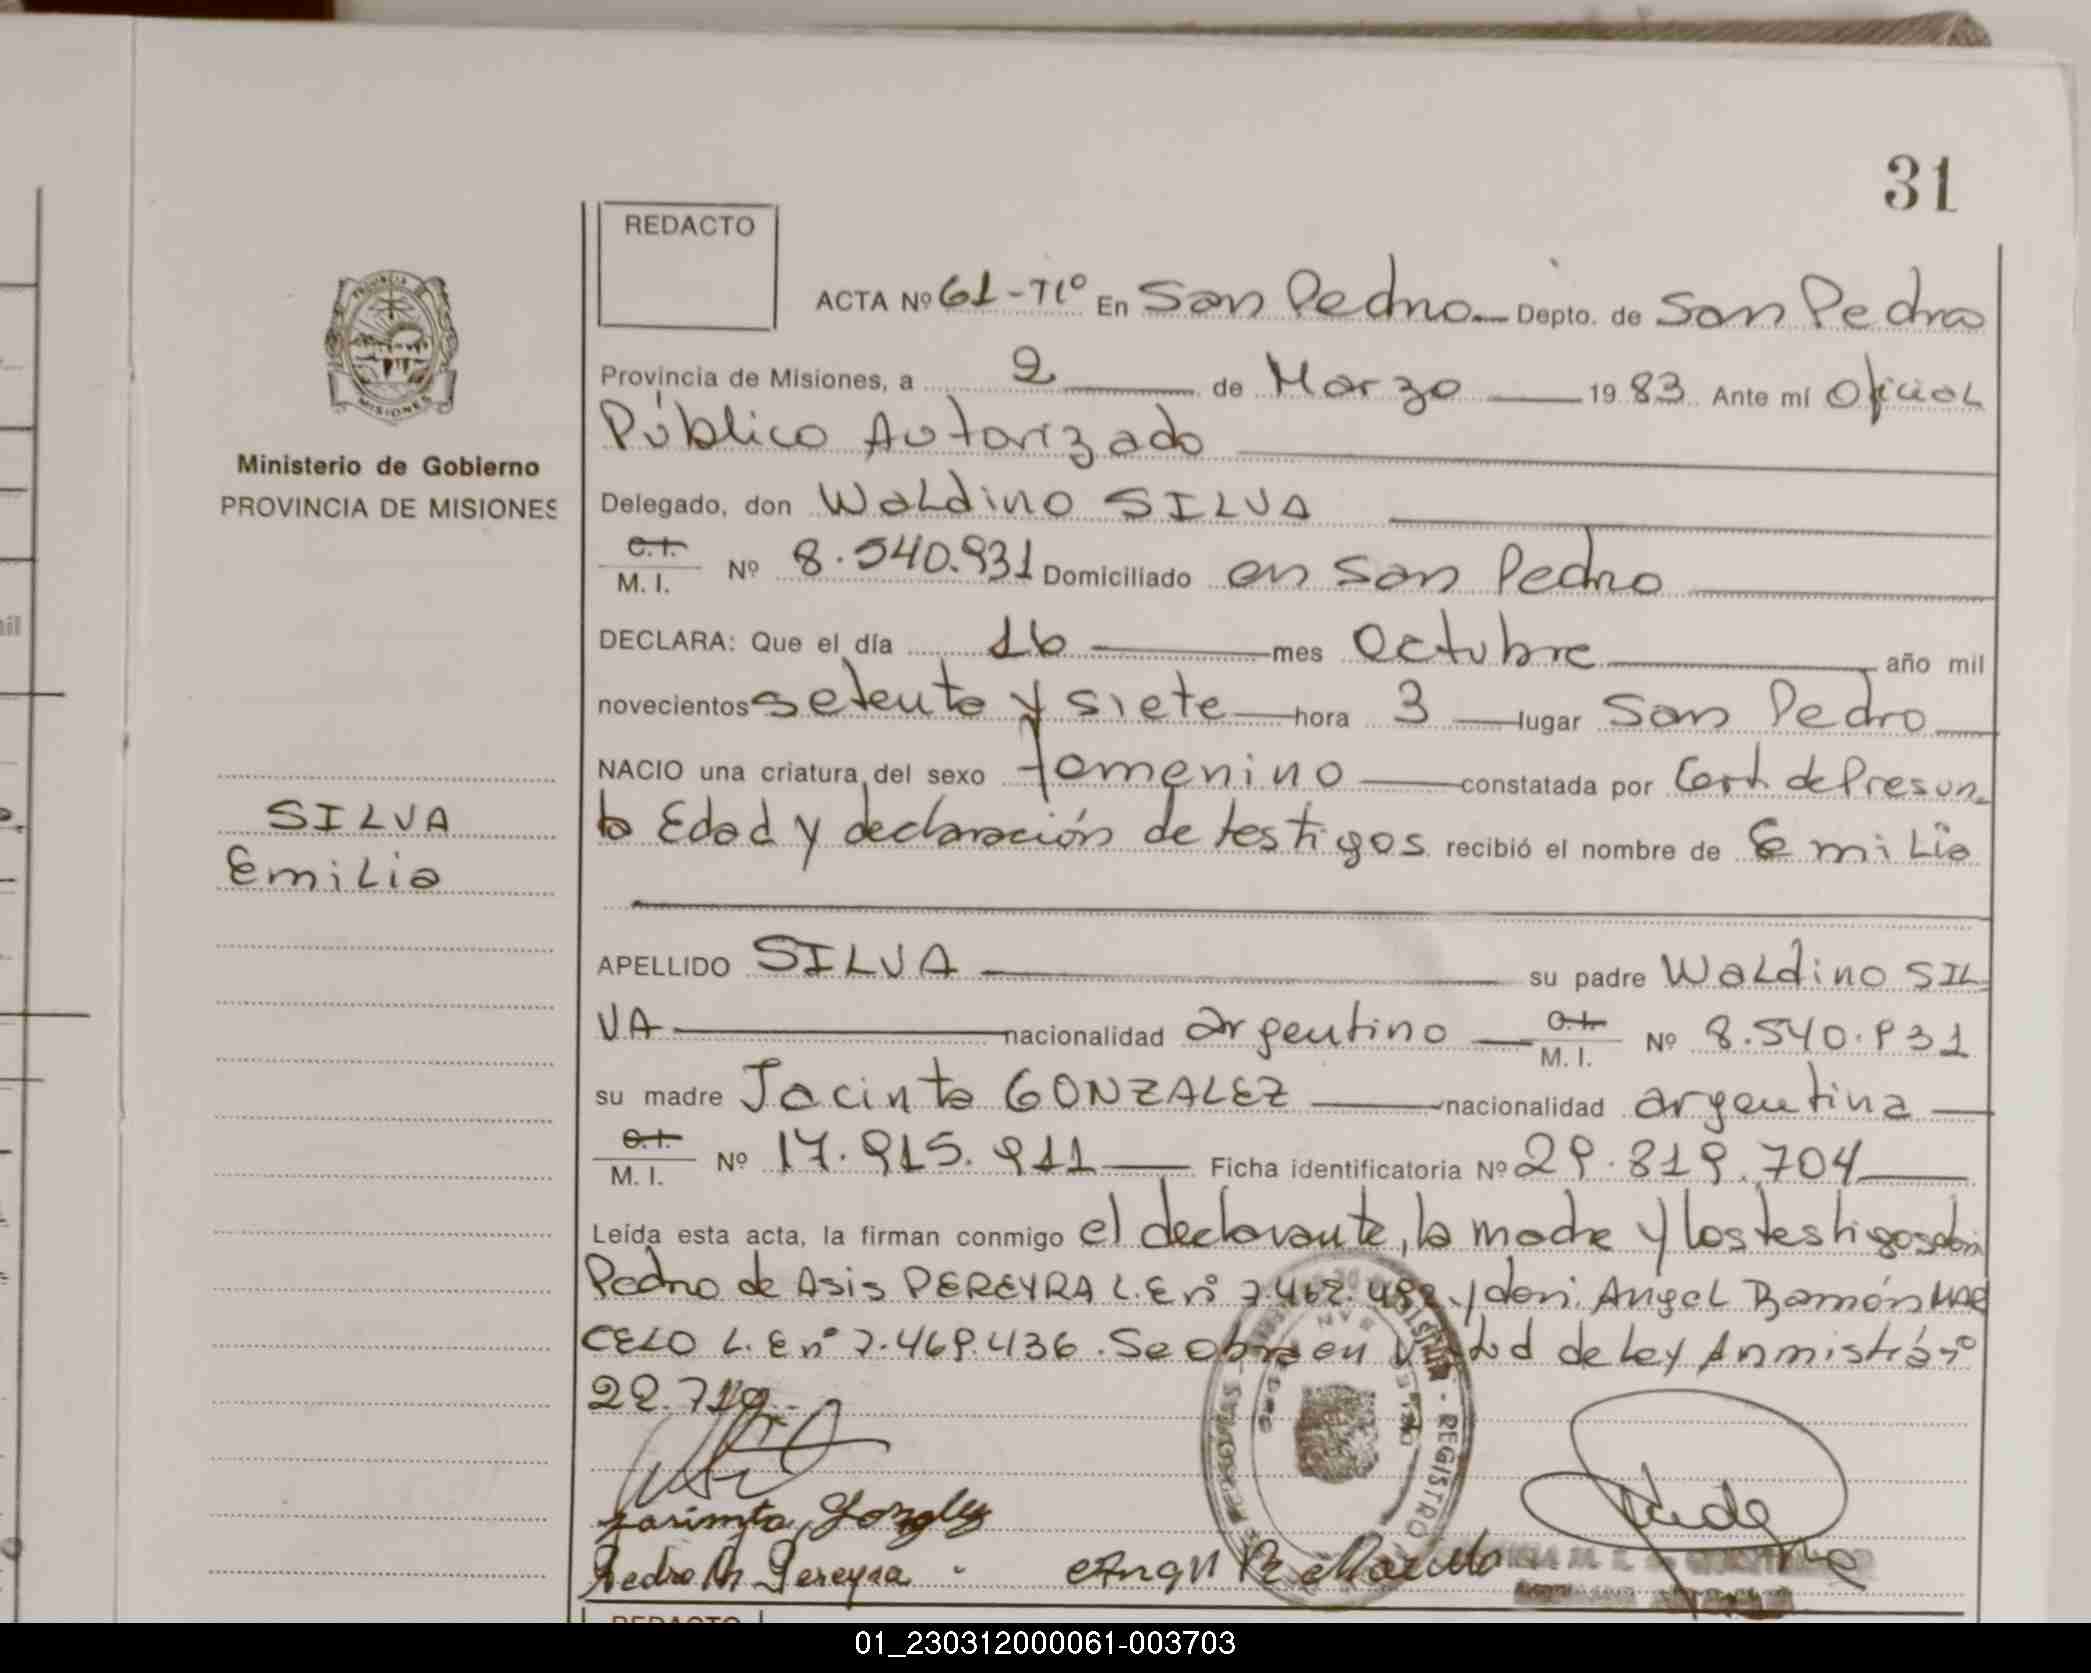 31
REDACTO
ACTA Nº 61-Tlº En San Pedro Depto. de San Pedro
Provincia de Misiones, a 2 de Marzo 19 83 Ante mí Oficial
Público Autorizado
Ministerio de Gobierno
PROVINCIA DE MISIONES
Delegado, don Waldino SILVA
C.I. M. I. Nº 8.540.931 Domiciliado en San Pedro
DECLARA: Que el día 16 mes Octubre año mil
novecientos setenta y siete hora 3 lugar San Pedro
NACIO una criatura del sexo femenino constatada por Cert. de Presun_
ta Edad y declaración de testigos recibió el nombre de Emilia
SILVA
Emilia
APELLIDO SILVA su padre Waldino SIL_
VA nacionalidad argentino C.I. M. I. Nº 8.540.931
su madre Jacinta GONZALEZ nacionalidad argentina
C.I. M. I. Nº 17.915.911 Ficha identificatoria Nº 29.819.704
Leída esta acta, la firman conmigo el declarante, la madre y los testigos
Pedro de Asis PEREYRA L.E nº 7.462.482 y don: Angel Ramón MAR
CELO L.E nº 7.469.436. Se obra en de Ley Anmistía nº
22.719.
Jasimta Gonzalez
Pedro Pereyra
Angel R
REGISTRO
01_230312000061-003703